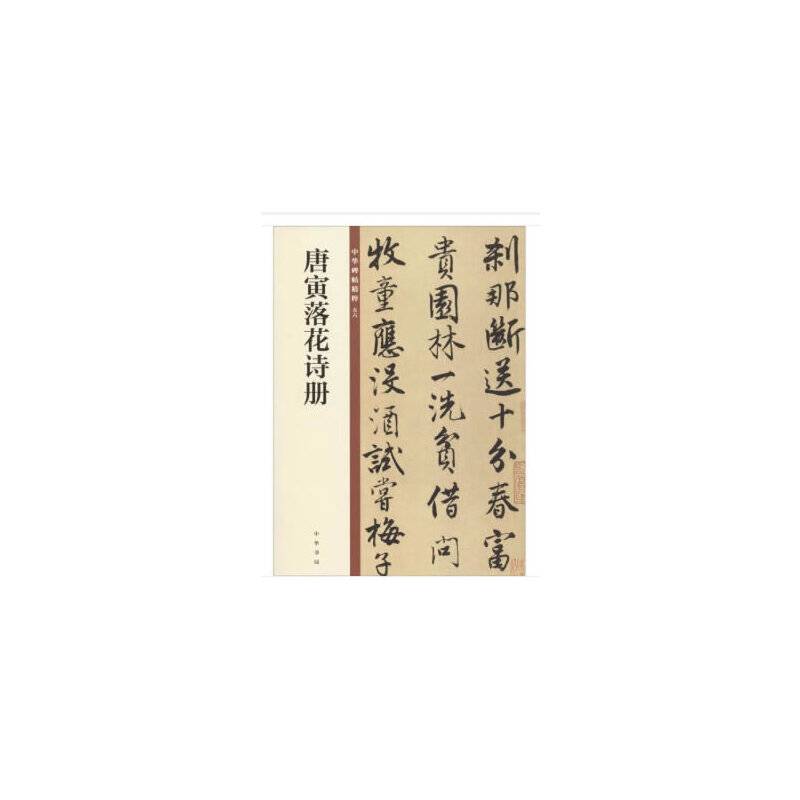 唐寅落花诗册
中华碑帖精粹
中华书局
刹那断送十分春富
貴園林一洗貧借问
牧童應没酒試嘗梅子